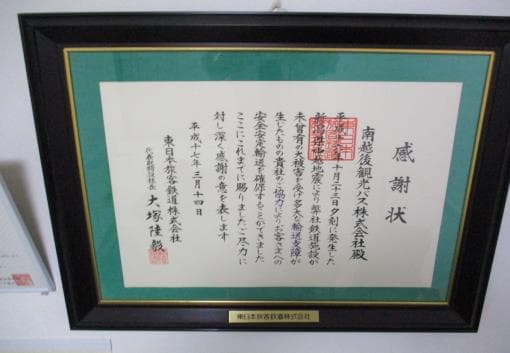 感謝状
南越後観光バス株式会社殿
平成十六年十月二十三日夕刻に発生した
新潟県中越地震により弊社鉄道施設が
未曾有の大被害を受け多大な輸送支障が
生じたものの貴社のご協力によりお客さまへの
安全安定輸送を確保することができました
ここにこれまでに賜りましたご尽力に
対し深く感謝の意を表します
平成十七年三月十四日
東日本旅客鉄道株式会社
代表取締役社長 大塚陸毅
東日本旅客鉄道株式会社